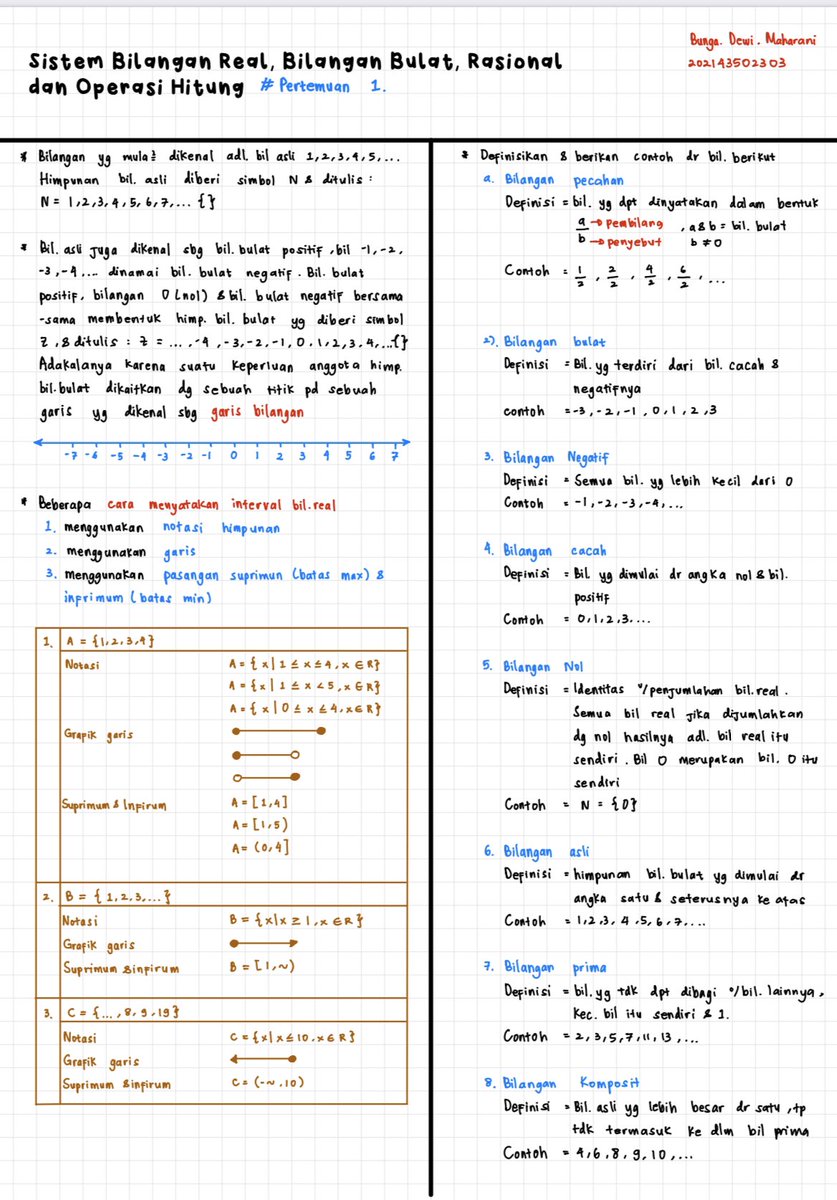 Sistem Bilangan Real, Bilangan Bulat, Rasional
dan Operasi Hitung # Pertemuan 1.
Bunga. Dewi. Maharani
202143502303
* Bilangan yg mula² dikenal adl. bil asli 1,2,3,4,5,...
Himpunan bil. asli diberi simbol N & ditulis :
N = 1,2,3,4,5,6,7,... {}
* Bil. asli juga dikenal sbg bil. bulat positif, bil -1,-2,
-3,-4.... dinamai bil. bulat negatif. Bil. bulat
positif, bilangan 0 (nol) & bil. bulat negatif bersama
-sama membentuk himp. bil. bulat yg diberi simbol
Z, & ditulis : Z = ...,-4,-3,-2,-1,0,1,2,3,4,...{}
Adakalanya karena suatu keperluan anggota himp.
bil. bulat dikaitkan dg sebuah titik pd sebuah
garis yg dikenal sbg garis bilangan
-7 -6 -5 -4 -3 -2 -1 0 1 2 3 4 5 6 7
* Beberapa cara menyatakan interval bil. real
1. menggunakan notasi himpunan
2. menggunakan garis
3. menggunakan pasangan suprimun (batas max) &
infrimum (batas min)
1. A = {1,2,3,4}
Notasi A = {x | 1 ≤ x ≤ 4, x ∈ R}
A = {x | 1 ≤ x < 5, x ∈ R}
A = {x | 0 ≤ x ≤ 4, x ∈ R}
Grafik garis
Suprimum & Infirum A = [1,4]
A = [1,5)
A = (0,4]
2. B = {1,2,3,...}
Notasi B = {x|x ≥ 1, x ∈ R}
Grafik garis
Suprimum & infirum B = [1,~)
3. C = {...,8,9,19}
Notasi C = {x|x ≤ 10. x ∈ R}
Grafik garis
Suprimum & infirum C = (-~.10)
* Definisikan & berikan contoh dr bil. berikut
a. Bilangan pecahan
Definisi = bil. yg dpt dinyatakan dalam bentuk
a → pembilang , a & b = bil. bulat
b → penyebut b ≠ 0
Contoh = 1/2, 2/2, 4/2, 6/2, ...
2). Bilangan bulat
Definisi = Bil. yg terdiri dari bil. cacah &
negatifnya
contoh = -3,-2,-1,0,1,2,3
3. Bilangan Negatif
Definisi = Semua bil. yg lebih kecil dari 0
Contoh = -1,-2,-3,-4,...
4. Bilangan cacah
Definisi = Bil yg dimulai dr angka nol & bil.
positif
Contoh = 0,1,2,3....
5. Bilangan Nol
Definisi = Identitas u/penjumlahan bil. real.
Semua bil real jika dijumlahkan
dg nol hasilnya adl. bil real itu
sendiri. Bil 0 merupakan bil. 0 itu
sendiri
Contoh = N = {0}
6. Bilangan asli
Definisi = himpunan bil. bulat yg dimulai dr
angka satu & seterusnya ke atas
Contoh = 1,2,3,4,5,6,7,...
7. Bilangan prima
Definisi = bil. yg tdk dpt dibagi o/bil. lainnya,
kec. bil itu sendiri & 1.
Contoh = 2,3,5,7,11,13,...
8. Bilangan Komposit
Definisi = Bil. asli yg lebih besar dr satu, tp
tdk termasuk ke dlm bil prima
Contoh = 4,6,8,9,10,...